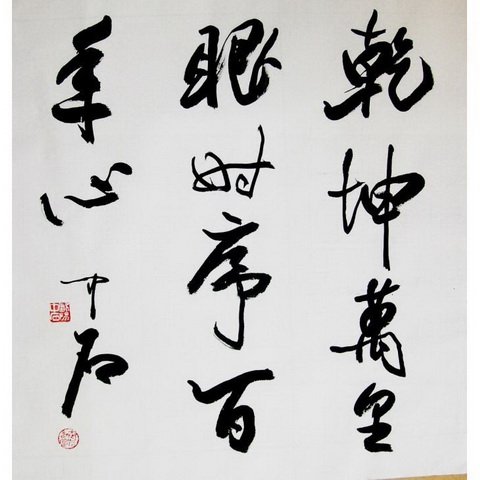 乾坤萬里
眼时序百
年心
中石